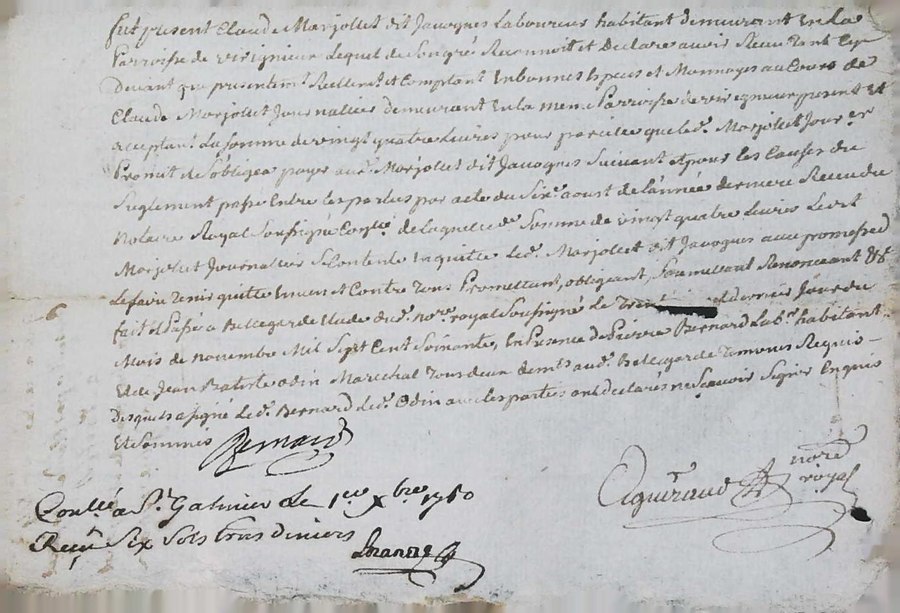 fut present Claude Marjollet dit Jacogues Laboureur habitant demeurant En La
Parroisse de virignieu Lequel de Son gré Reconnoit et Declare avoir Recu Tant Cy
Devant que presentemt. Reellemt. et Comptant En bonnes Especes et Monnoyes au Cours de
Claude Marjolet Journallier demeurant En la meme Parroisse de virigneu present Et
aceptant La Somme de vingt quatre Livres pour pareille que led. Marjolet Jour.er
Promit et S'obligea payer aud. Marjolet dit Jacogues Suivant et pour les Causes du
Reglement passé Entre les parties par acte du Six.e aoust de l'année derniere Receu de
Notaire Royal Soussigné de laquelle de. Somme de vingt quatre Livres Le dit
Marjollet Journallier Se Contente En quitte led. Marjollet dit Jacogues avec promesse d
Le faire Tenir quitte Envers et Contre Tous Promettant, obligeant, Soumettant Renonceant &&.
fait et Passé a Bellegarde Etude du.d. no.re royal Soussigné Le et dernier Jour du
Mois de novembre Mil Sept Cent Soixante, En Presence de Pierre Bernard Lab.r habitant
Et de Jean Batiste Odin Marechal Tous deux demts. aud. Bellegarde Temoins Requis
Desquels a Signé led. Bernard led. Odin avec les parties ont declares ne Scavoir Signer Enquis
Et Sommés Bernard
nore.
royal
Conllé a St. Galmier Le 1er Xbre 1760
Reçu Six Sols trois diniers